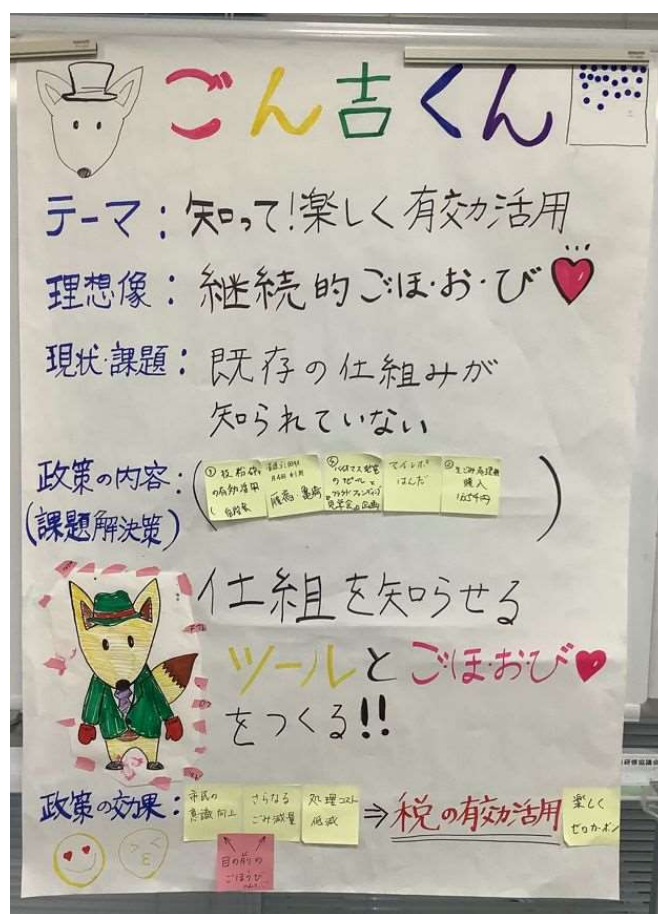 ごん吉くん
テーマ：知って！楽しく有効活用
理想像：継続的ごほ・お・び
現状・課題：既存の仕組みが
知られていない
政策の内容：
(課題解決策)
① 枝
の有効活用
雁宿・亀崎
⑤ バイオマス発電
のPRと
クラウドファンディング
見学会の企画
マイレポ
はんだ
生ごみ処理機
購入
仕組を知らせる
ツールとごほ・お・び
をつくる!!
政策の効果：
市民の
意識向上
さらなる
ごみ減量
処理コスト
低減
⇒税の有効活用
楽しく
ゼロカーボン
目の前の
ごほうび
研修協議会